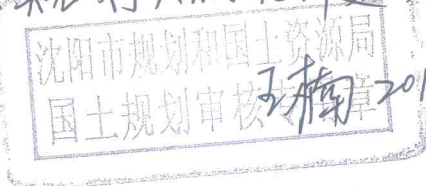 沈阳市规划和国土资源局
国土规划审核专用章
王楠 201